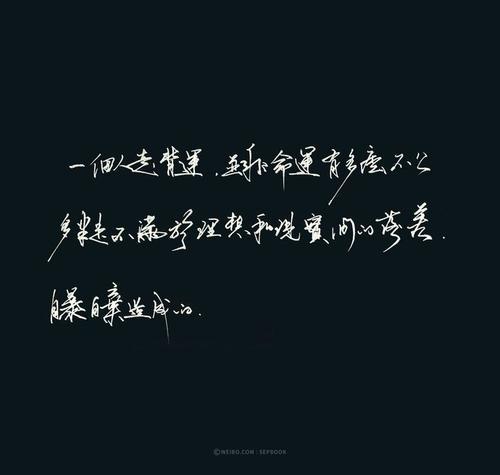 一個人走背運，並非命運有多麼不公
多半是不滿於理想和現實間的落差，
自暴自棄造成的.
©WEIBO.COM : SEPBOOK